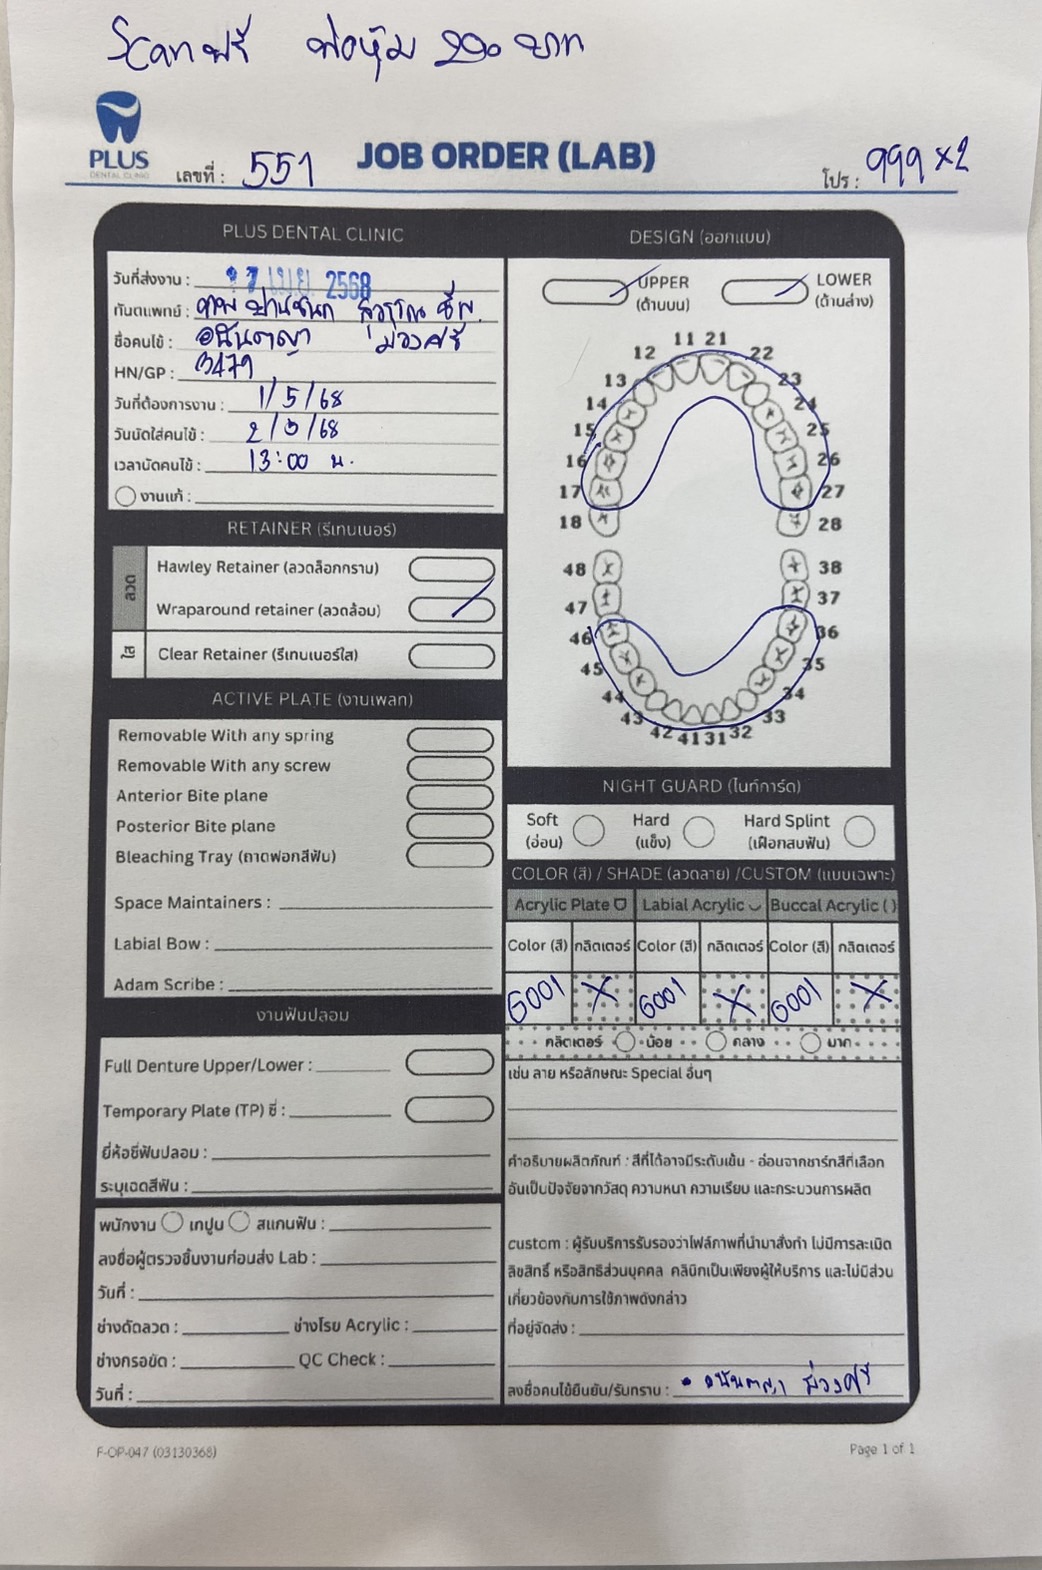 Scan ฟรี ท่อหุ้ม 200 บาท
PLUS
DENTAL CLINIC
เลขที่ : 551
JOB ORDER (LAB)
โปร : 999 x2
PLUS DENTAL CLINIC
วันที่ส่งงาน : 17 เม.ย. 2568
ทันตแพทย์ : ทพ ปานชนก
ชื่อคนไข้ : อนันตญา ม่วงศรี
HN/GP : 3479
วันที่ต้องการงาน : 1/5/68
วันนัดใส่คนไข้ : 2/5/68
เวลานัดคนไข้ : 13:00 น.
งานแก้ :
RETAINER (รีเทนเนอร์)
ลวด
Hawley Retainer (ลวดล็อกกราม)
Wraparound retainer (ลวดล้อม)
ใส
Clear Retainer (รีเทนเนอร์ใส)
ACTIVE PLATE (งานเพลท)
Removable With any spring
Removable With any screw
Anterior Bite plane
Posterior Bite plane
Bleaching Tray (ถาดฟอกสีฟัน)
Space Maintainers :
Labial Bow :
Adam Scribe :
งานฟันปลอม
Full Denture Upper/Lower :
Temporary Plate (TP) ซี่ :
ยี่ห้อซี่ฟันปลอม :
ระบุเฉดสีฟัน :
พนักงาน เทปูน สแกนฟัน :
ลงชื่อผู้ตรวจชิ้นงานก่อนส่ง Lab :
วันที่ :
ช่างดัดลวด : ช่างโรย Acrylic :
ช่างกรอขัด : QC Check :
วันที่ :
DESIGN (ออกแบบ)
UPPER
(ด้านบน)
LOWER
(ด้านล่าง)
11 21
12 22
13 23
14 24
15 25
16 26
17 27
18 28
48 38
47 37
46 36
45 35
44 34
43 33
42 41 31 32
NIGHT GUARD (ไนท์การ์ด)
Soft
(อ่อน)
Hard
(แข็ง)
Hard Splint
(เฝือกสบฟัน)
COLOR (สี) / SHADE (ลวดลาย) /CUSTOM (แบบเฉพาะ)
Acrylic Plate Labial Acrylic Buccal Acrylic ( )
Color (สี) กลิตเตอร์ Color (สี) กลิตเตอร์ Color (สี) กลิตเตอร์
G001 X G001 X G001 X
กลิตเตอร์ น้อย กลาง มาก
เช่น ลาย หรือลักษณะ Special อื่นๆ
คำอธิบายผลิตภัณฑ์ : สีที่ได้อาจมีระดับเข้ม - อ่อนจากชาร์ทสีที่เลือก
อันเป็นปัจจัยจากวัสดุ ความหนา ความเรียบ และกระบวนการผลิต
custom : ผู้รับบริการรับรองว่าไฟล์ภาพที่นำมาสั่งทำ ไม่มีการละเมิด
ลิขสิทธิ์ หรือสิทธิส่วนบุคคล คลินิกเป็นเพียงผู้ให้บริการ และไม่มีส่วน
เกี่ยวข้องกับการใช้ภาพดังกล่าว
ที่อยู่จัดส่ง :
ลงชื่อคนไข้ยืนยัน/รับทราบ : อนันตญา ม่วงศรี
F-OP-047 (03130368)
Page 1 of 1